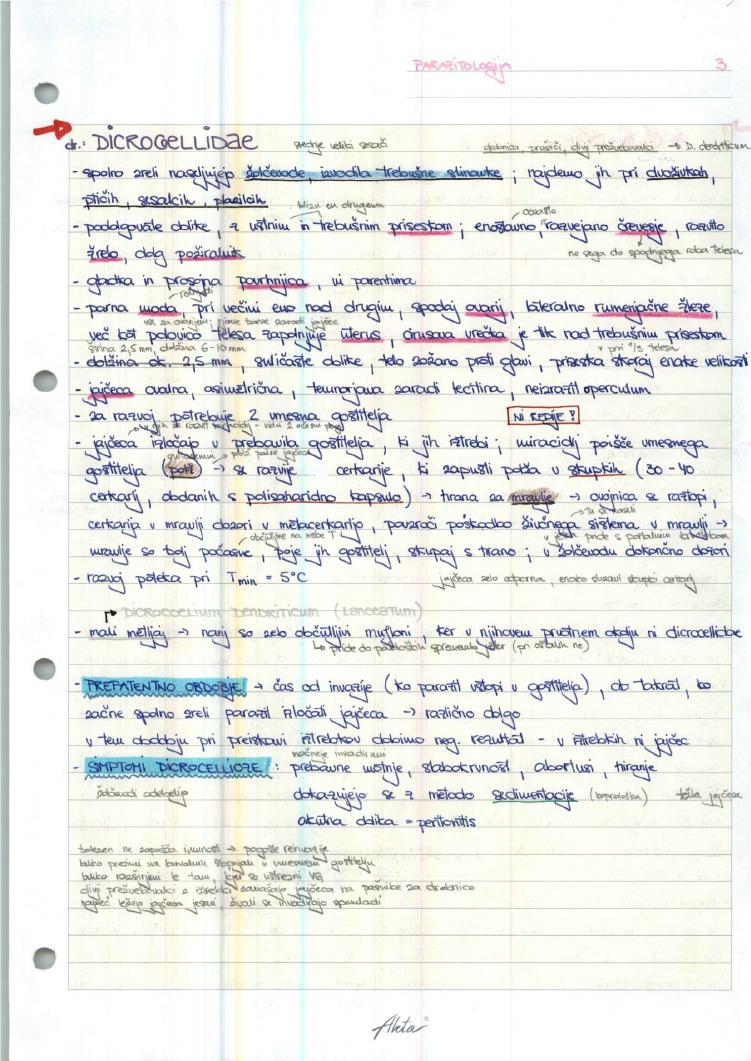 PARAZITOLOGIJA 3
dr.: DICROCELLIDAE srednje veliki sesači drobnica, prašiči, divji prežvekovalci → D. dendriticum
- spolno zreli naseljujejo žolčevode, izvodila trebušne slinavke ; najdemo jih pri dvoživkah,
ptičih, sesalcih, plazilcih
blizu en drugemu
- podolgovate oblike, z ustnim in trebušnim priseskom ; enostavno, razvejano črevesje, razvito
žrelo, dolg požiralnik ne sega do spodnjega roba telesa
- gladka in prosojna površnjica, ni parenhima
- parna moda, pri večini eno nad drugim, spodaj ovarij, lateralno rumenjačne žleze,
več kot polovico telesa zapolnjuje uterus, cirusova vrečka je tik nad trebušnim priseskom
širina 2,5 mm, dolžina 6-10 mm v pri 1/3 telesa
- dolžina ok. 2,5 mm, suličaste oblike, telo zožano proti glavi, priseska skoraj enake velikosti
- jajčeca ovalna, asimetrična, temnorjava zaradi lecitina, neizrazit operculum
- za razvoj potrebuje 2 vmesna gostitelja NI REDIJE !
- jajčeca izločajo v prebavila gostitelja, ki jih iztrebi ; miracidij poišče vmesnega
polž požre jajčeca
gostitelja (polž) → se razvije cerkarije, ki zapušti polža v skupkih (30 - 40
cerkarij, obdanih s polisaharidno kapsulo) → hrana za mravlje → ovojnica se raztopi,
cerkarija v mravlji dozori v metacerkarijo, povzroči poškodbo živčnega sistema v mravlji →
v jetra pride s portalnim krvotokom
mravlje so bolj počasne, poje jih gostitelj, skupaj s travo ; v žolčevodu dokončno dozori
- razvoj poteka pri Tmin = 5°C jajčeca zelo odporna, enako sluzavi skupki cerkarij
→ DICROCOELIUM DENDRITICUM (LANCEATUM)
- mali metljaj → nanj so zelo občutljivi mufloni, ker v njihovem prvotnem okolju ni dicrocelioze
↳ pride do patoloških sprememb jeter (pri ostalih ne)
- PREPATENTNO OBDOBJE → čas od invazije (ko parazit vstopi v gostitelja), do takrat, ko
začne spolno zreli parazit izločati jajčeca → različno dolgo
v tem obdobju pri preiskavi iztrebkov dobimo neg. rezultat - v iztrebkih ni jajčec
močneje invadirani
- SIMPTOMI DICROCELIOZE : prebavne motnje, slabokrvnost, abortusi, hiranje
žolčevodi odebelijo dokazujejo se z metodo sedimentacije (koprološka) težka jajčeca
akutna oblika = peritonitis
bolezen ne zapušča imunosti → pogoste reinvazije
lahko prezimi na larvalnih stopnjah v vmesnem gostitelju
lahko razširjeni le tam, kjer so ustrezni VG
divji prežvekovalci z iztrebki zanašajo jajčeca na pašnike za drobnico
največ ležejo jajčeca jeseni, živali se invadirajo spomladi
Akta